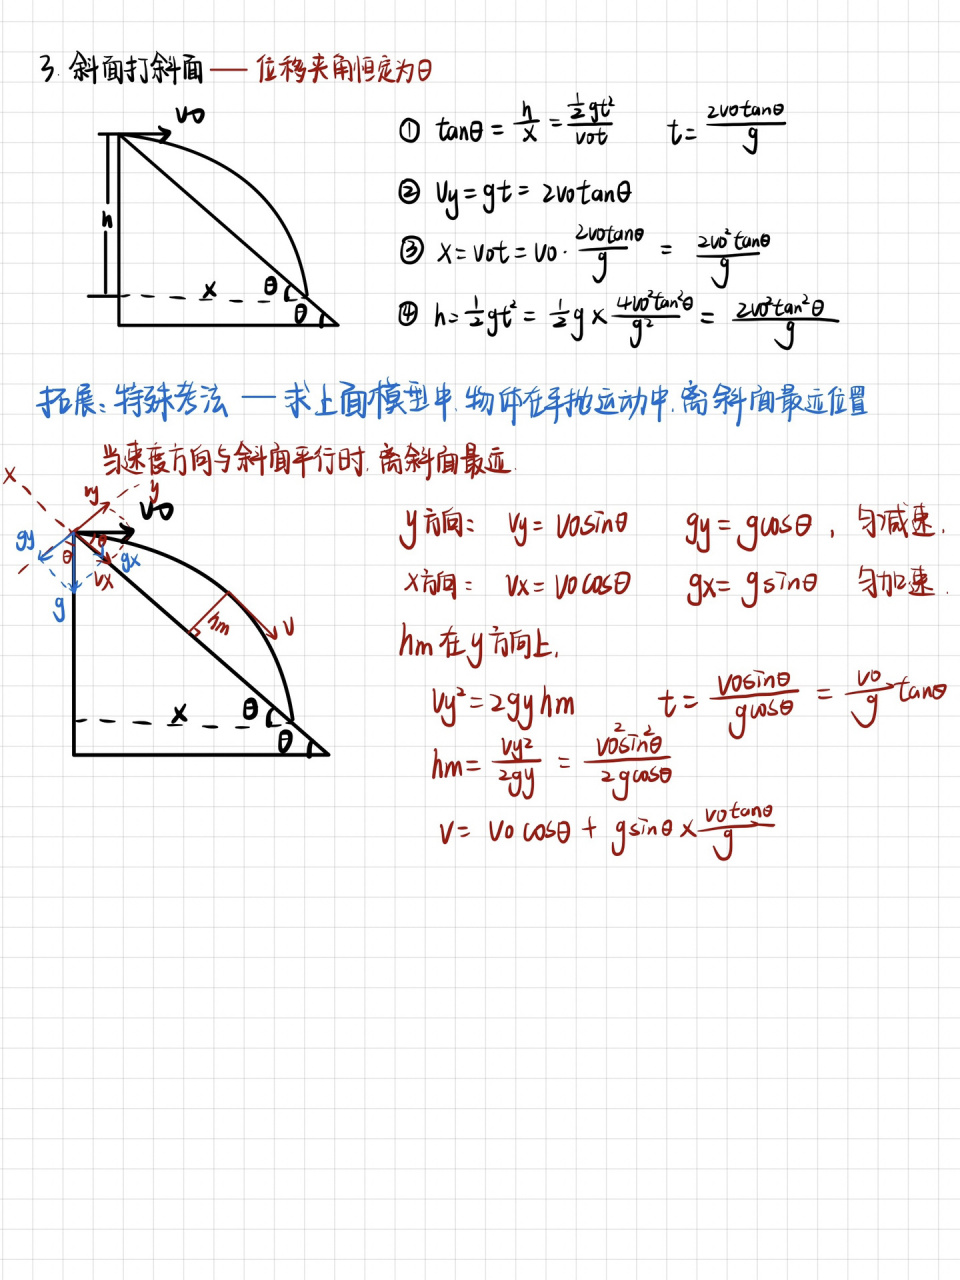 3. 斜面打斜面 —— 位移夹角恒定为θ
v0
h
x
θ
θ
① tanθ = h/x = ½gt²/v0t  t = 2v0tanθ/g
② vy = gt = 2v0tanθ
③ x = v0t = v0 · 2v0tanθ/g = 2v0²tanθ/g
④ h = ½gt² = ½g × 4v0²tan²θ/g² = 2v0²tan²θ/g
拓展: 特殊考法 — 求上面模型中, 物体在平抛运动中, 离斜面最远位置
当速度方向与斜面平行时, 离斜面最远.
x
vy
y
v0
gy
θ
θ
gx
vx
g
hm
v
x
θ
θ
y方向: vy = v0sinθ  gy = gcosθ, 匀减速.
x方向: vx = v0cosθ  gx = gsinθ 匀加速.
hm在y方向上,
vy² = 2gyhm  t = v0sinθ/gcosθ = v0/g tanθ
hm = vy²/2gy = v0²sin²θ/2gcosθ
v = v0cosθ + gsinθ × v0tanθ/g